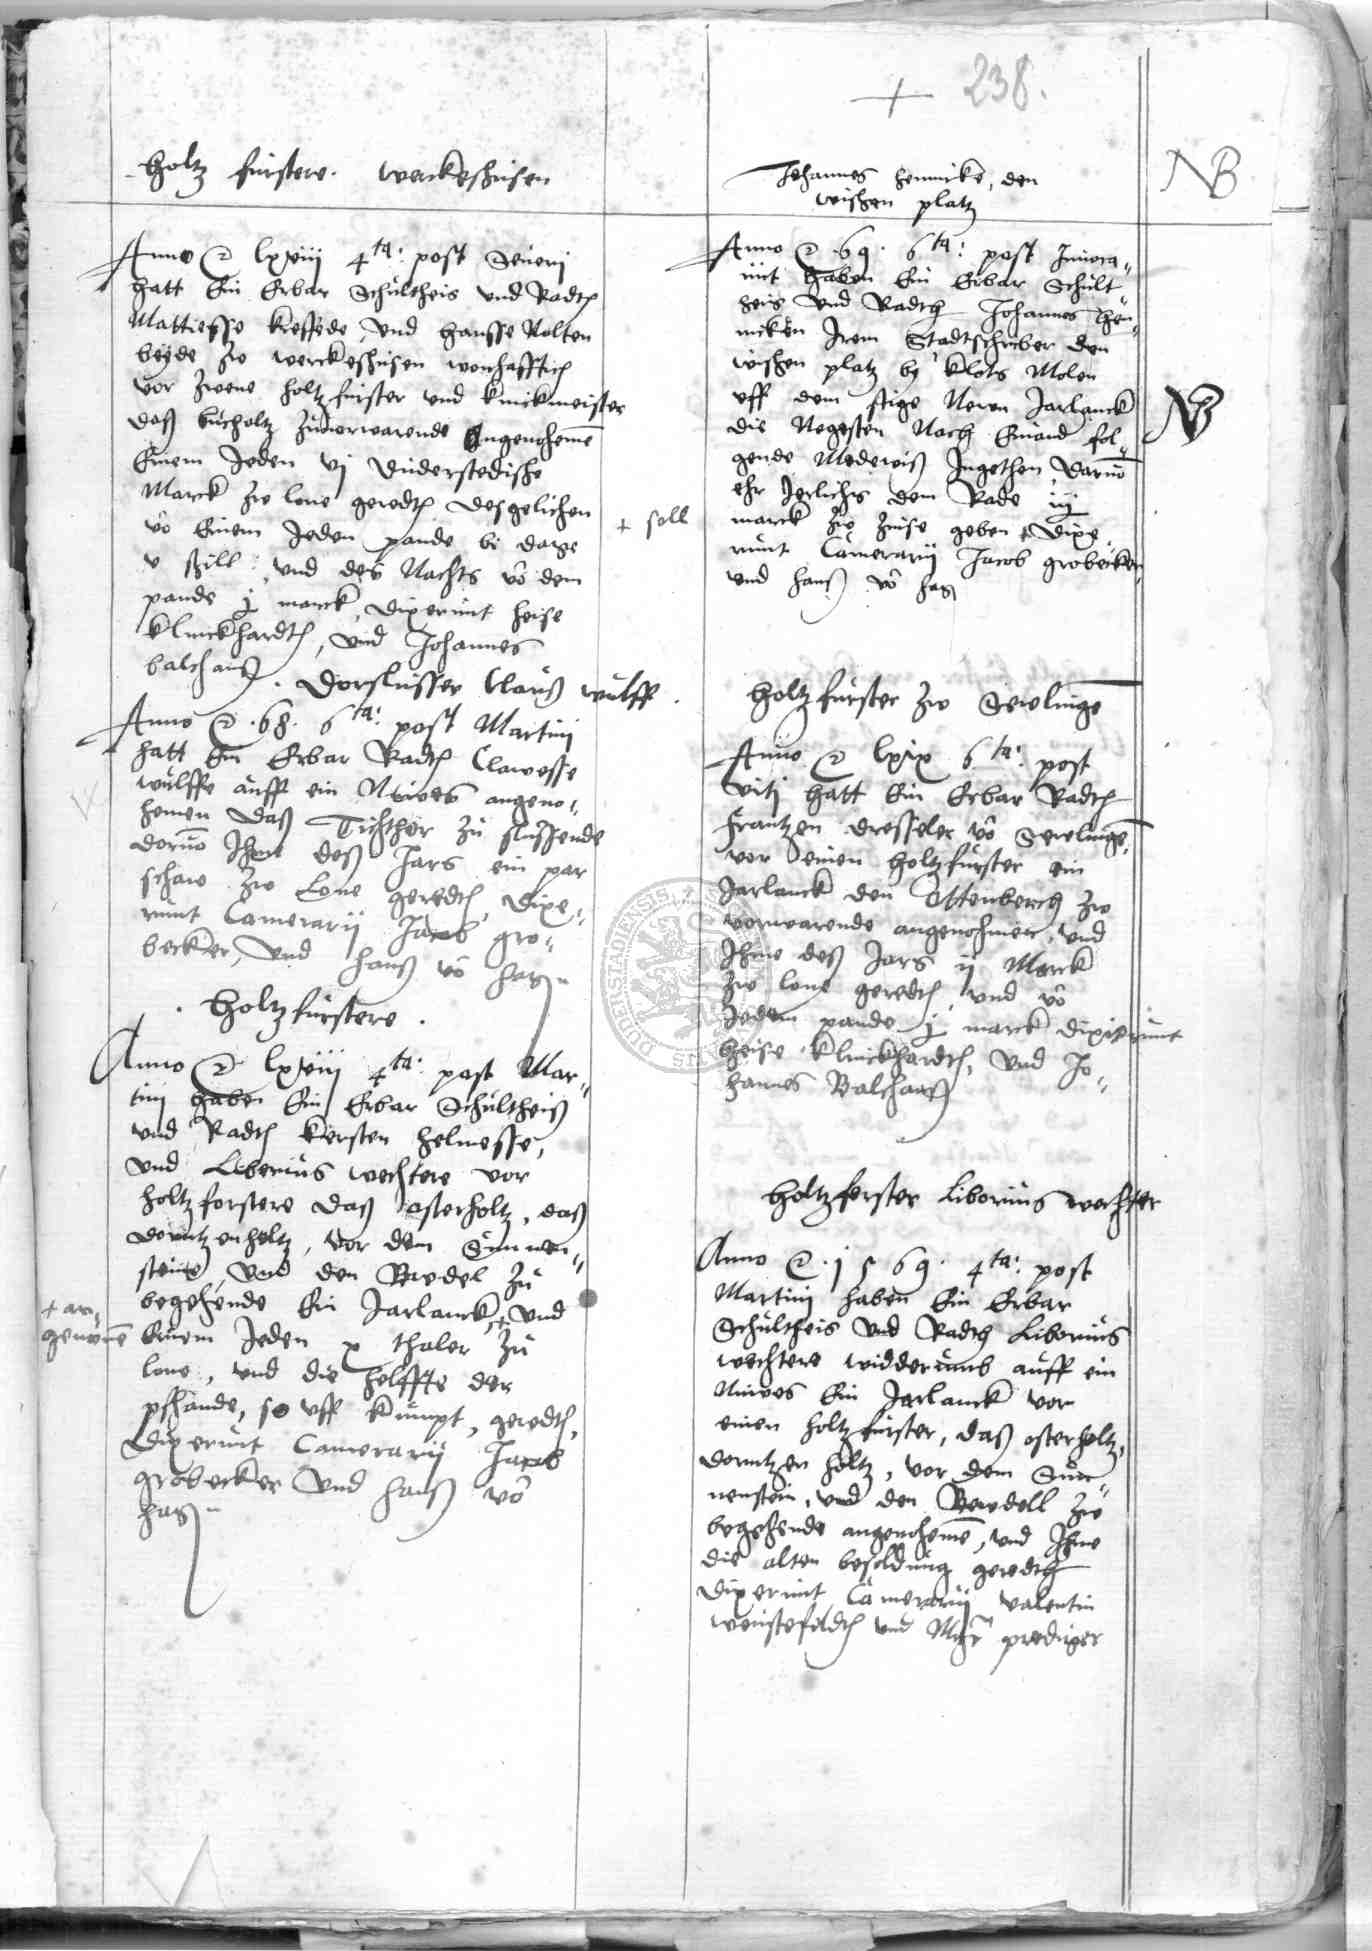 238.
holtz furstere. werckeshusen
Anno &c lxviij 4ta: post Seuerj
hatt Ein Erbar Schultheis vnd Radth
Mattiesse kreffede, vnd hansse Nolten
beyde zw werckeshusen wonhafftich
vor zwene holtzfurster vnd knickmeister
daß buchholtz zuuorwarende Angenohemē
Einem Jeden vj Duderstedische
Marck zw lone geredth desgelichen
vō Einem Jeden pande bi dage
v ßill: vnd des Nachts vō dem
pande j marck, Dixerunt heise
klinckhardth, vnd Johannes
balthauß
+ soll
. Dorslusser Clauß wulff .
Anno &c .68. 6ta: post Martinj
hatt Ein Erbar Radth Clawesse
wulffe auff ein Nuwes angeno-
hemen daß Tichthor zu slussende
doruō Ihm deß Jars ein par
schaw zw Lone geredth, Dixe-
runt Camerarij Jacob gro-
becker, vnd hanß vō hag
. holtzfurstere .
Anno &c lxviij 4ta: post Mar-
tinj haben Ein Erbar Schultheiß
vnd Radth kersten helmesse,
vnd Liborius wechtere vor
holtzforstere daß osterholtz, daß
doruntzenholtz, vor dem Sunnen-
steine vnd den Rwedel zu
begehende Ein Jarlanck, + vnd
+ an-
genomē
Einem Jeden x thaler zu
lone, vnd die helffte der
pfhande, so vff kumpt, geredth,
Dixerunt Camerarij Jacob
grobecker vnd hanß vō
hag
Johannes hennicke, den
wishen platz
NB
Anno &c .69. 6ta: post Inuoca-
uit haben Ein Erbar Schult
heis vnd Radth Johannes Hen-
nicken Irem Stadtschriber den
wishen platz by klots Molen
vff dem stige Neun Jarlanck
die Negesten Nach Einand fol-
gende Mederwiß Ingethan, daruō
ehr Jerlichs dem Rade iij
marck zw zinse geben + Dixe-
runt Camerarij Jacob grobecker
vnd hanß vō hag
NB
holtzfurster zw Serelingē
Anno &c lxix 6ta: post
Vitj hatt Ein Erbar Radth
frantzen dresseler vō Serelingē
vor einen holtzfurster ein
Jarlanck den Ottenberch zw
vorwarende angenohmen, vnd
Ihme deß Jars ij Marck
zw lone geredth, vnd vō
Jedem pande j marck dixerunt
heise klinckhardth, vnd Jo-
hannes Balthauß
holtzforster Liborius wechter
Anno &c .1569. 4ta: post
Martinj haben Ein Erbar
Schultheis vnd Radth Liborius
wechtere widderumb auff ein
Nuwes Ein Jarlanck vor
einen holtzfurster, daß osterholtz,
doruntzen holtz, vor dem Sun
nenstein, vnd den Rwedell zw
begehende angenohemē, vnd Ihme
die alten besoldung geredth
Dixerunt Camerarij valentin
weustefeldth vnd prediger